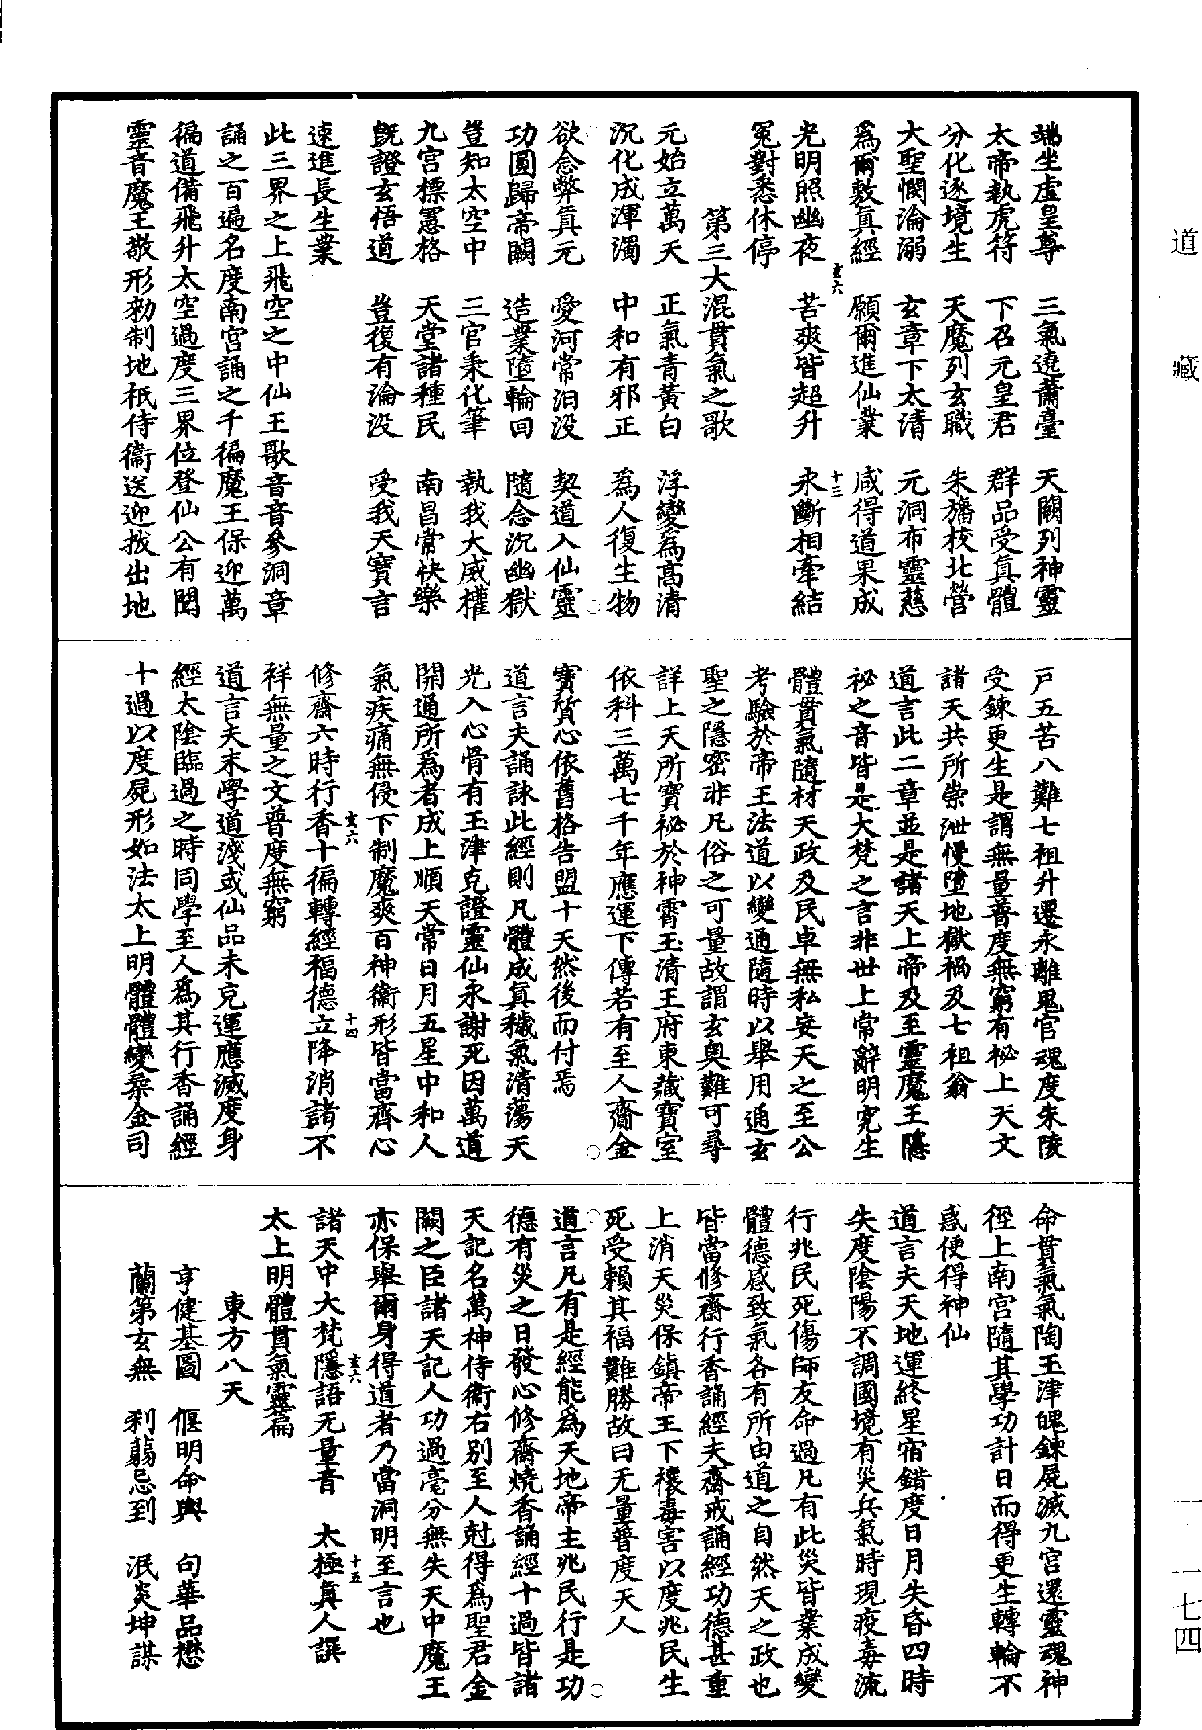 道藏
端坐虛皇尊　三氣遶蕭臺　天關列神靈
太帝執虎符　下召元皇君　群品受真體
分化逐境生　天魔列玄職　朱旛校北營
大聖憫淪溺　玄章下太清　元洞布靈慈
為爾敷真經　願爾進仙業　咸得道果成
玄六　十三
光明照幽夜　苦爽皆超升　永斷相牽結
冤對悉休停
第三大混貫氣之歌
元始立萬天　正氣青黃白　浮變為高清
沉化成渾濁　中和有邪正　為人復生物
欲念弊真元　愛河常汩沒　契道入仙靈
功圓歸帝闕　造業墮輪回　隨念沉幽獄
豈知太空中　三官秉化筆　執我大威權
九宮標憲格　天堂諸種民　南昌常快樂
既證玄悟道　豈復有淪沒　受我天寶言
速進長生業
此三界之上飛空之中仙王歌音音參洞章
誦之百遍名度南宮誦之千徧魔王保迎萬
徧道備飛升太空過度三界位登仙公有聞
靈音魔王敬形勑制地祇侍衛送迎拔出地
戶五苦八難七祖升遷永離鬼官魂度朱陵
受鍊更生是謂無量普度無窮有祕上天文
諸天共所崇泄慢墮地獄禍及七祖翁
道言此二章並是諸天上帝及至靈魔王隱
祕之音皆是大梵之言非世上常辭明究生
體貫氣隨材天政及民卓無私妄天之至公
考驗於帝王法道以變通隨時以舉用通玄
聖之隱密非凡俗之可量故謂玄奧難可尋
詳上天所寶祕於神霄玉清王府東藏寶室
依科三萬七千年應運下傳若有至人齎金
寶質心依舊格告盟十天然後而付焉
道言夫誦詠此經則凡體成真穢氣清蕩天
光入心骨有玉津克證靈仙永謝死因萬道
開通所為者成上順天常日月五星中和人
氣疾痛無侵下制魔爽百神衛形皆當齊心
玄六　十四
修齋六時行香十徧轉經福德立降消諸不
祥無量之文普度無窮
道言夫末學道淺或仙品未克運應滅度身
經太陰臨過之時同學至人為其行香誦經
十過以度屍形如法太上明體體變橤金司
命貫氣氣陶玉津魄鍊屍滅九宮還靈魂神
徑上南宮隨其學功計日而得更生轉輪不
惑便得神仙
道言夫天地運終星宿錯度日月失昏四時
失度陰陽不調國境有災兵氣時現疫毒流
行兆民死傷師友命過凡有此災皆業成變
體德感致氣各有所由道之自然天之政也
皆當修齋行香誦經夫齋戒誦經功德甚重
上消天災保鎮帝王下禳毒害以度兆民生
死受賴其福難勝故曰无量普度天人
道言凡有是經能為天地帝主兆民行是功
德有災之日發心修齋燒香誦經十過皆諸
天記名萬神侍衛右別至人尅得為聖君金
闕之臣諸天記人功過毫分無失天中魔王
亦保舉爾身得道者乃當洞明至言也
玄六　十五
諸天中大梵隱語无量音　太極真人譔
太上明體貫氣靈篇
東方八天
亨健基圖　偃明命輿　句華品懋
蘭第玄無　剎蒻忌到　泯炎坤謀
一　一七四